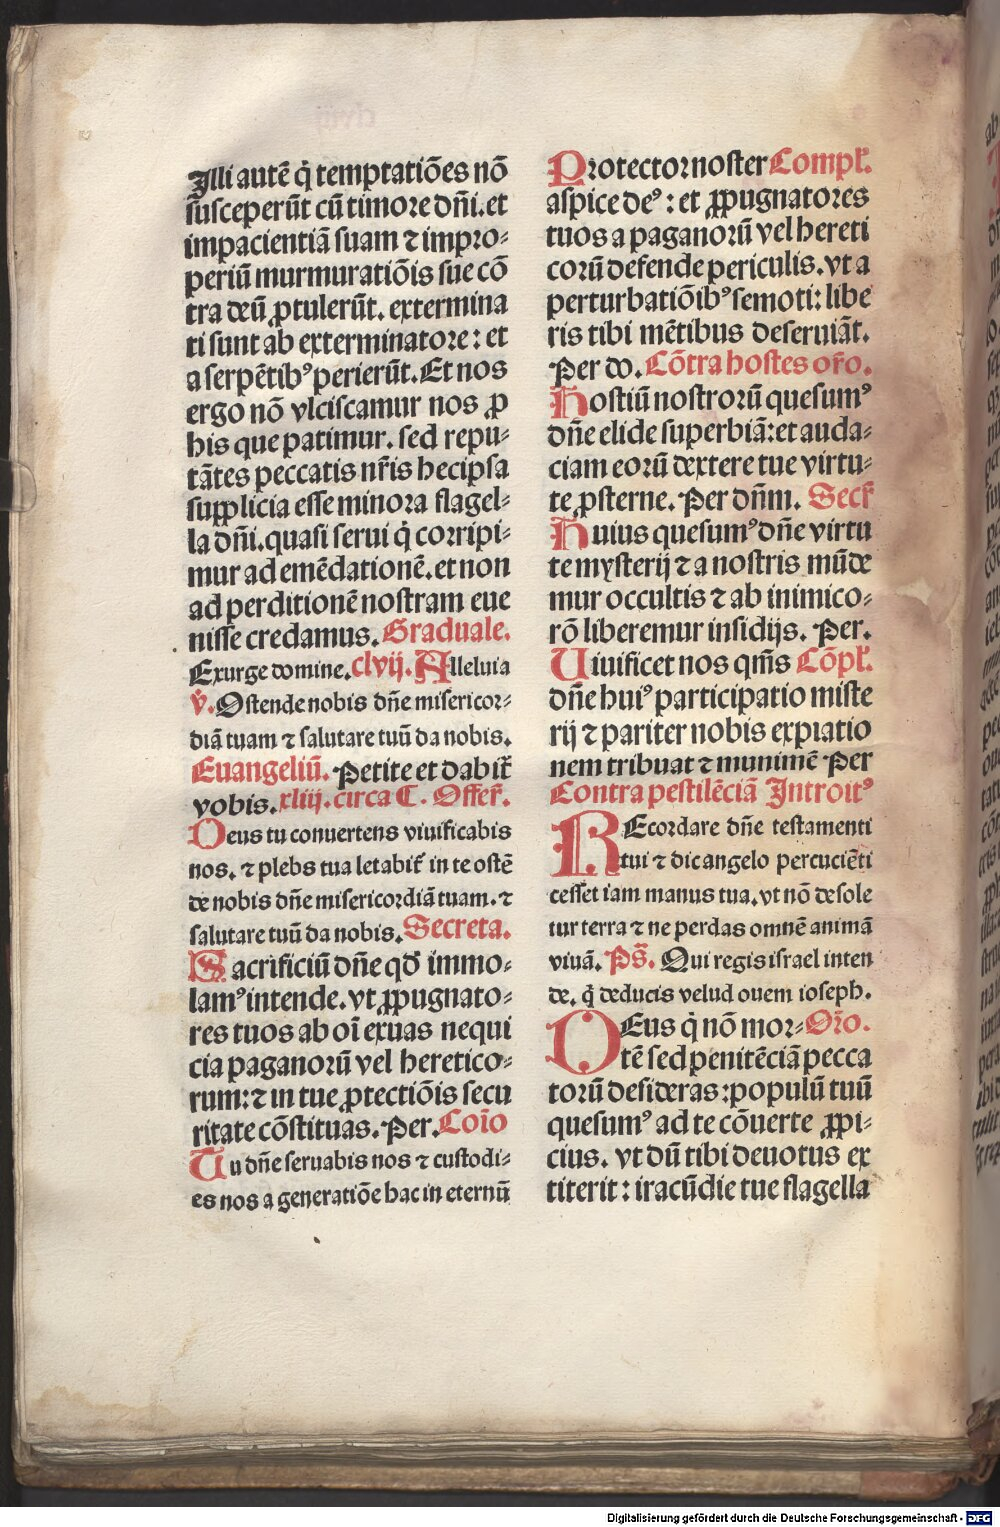 Illi autē q̇ temptatiōes nō
susceperūt cū timore dn̄i. et
impacientiā suam ⁊ impro⸗
periū murmuratiōis sue cō
tra deū ꝓtulerūt. extermina
ti sunt ab exterminatore: et
a serpētib⁹ perierūt. Et nos
ergo nō vlciscamur nos ꝓ
his que patimur. sed repu⸗
tātes peccatis nr̄is hec ipsa
supplicia esse minora flagel⸗
la dn̄i. quasi serui q̇ corripi⸗
mur ad emēdationē. et non
ad perditionē nostram eue
nisse credamus. Graduale.
Exurge domine. clvij. Alleluia
v̇. Ostende nobis dn̄e misericor⸗
diā tuam ⁊ salutare tuū da nobis.
Euangeliū. Petite et dabit̄
vobis. xliij. circa C. Offer̄.
Deus tu conuertens viuificabis
nos. ⁊ plebs tua letabit̄ in te ostē
de nobis dn̄e misericordiā tuam. ⁊
salutare tuū da nobis. Secreta.
Sacrificiū dn̄e qd̄ immo⸗
lam⁹ intende. vt ꝓpugnato⸗
res tuos ab oī exuas nequi
cia paganorū vel heretico⸗
rum: ⁊ in tue ꝓtectiōis secu
ritate cōstituas. Per. Coīo
Tu dn̄e seruabis nos ⁊ custodi⸗
es nos a generatiōe hac in eternū
Protector noster Compl̄.
aspice de⁹: et ꝓpugnatores
tuos a paganorū vel hereti
corū defende periculis. vt a
perturbatiōib⁹ semoti: libe
ris tibi mētibus deseruiāt.
Per do. Cōtra hostes or̄o.
Hostiū nostrorū quesum⁹
dn̄e elide superbiā: et auda⸗
ciam eorū dextere tue virtu⸗
te ꝓsterne. Per dn̄m. Secr̄
Huius quesum⁹ dn̄e virtu
te mysterij ⁊ a nostris mūde
mur occultis ⁊ ab inimico⸗
rō liberemur insidijs. Per.
Uiuificet nos qm̄s Cōpl̄.
dn̄e hui⁹ participatio miste
rij ⁊ pariter nobis expiatio
nem tribuat ⁊ munimē Per
Contra pestilēciā Introit⁹
REcordare dn̄e testamenti
tui ⁊ dic angelo percuciēti
cesset iam manus tua. vt nō desole
tur terra ⁊ ne perdas omnē animā
viuā. Ps̄. Qui regis israel inten
de. q̇ deducis velud ouem ioseph.
DEus q̇ nō mor⸗ Or̄o.
tē sed penitēciā pecca
torū desideras: populū tuū
quesum⁹ ad te cōuerte ꝓpi⸗
cius. vt dū tibi deuotus ex
titerit: iracūdie tue flagella
Digitalisierung gefördert durch die Deutsche Forschungsgemeinschaft - DFG